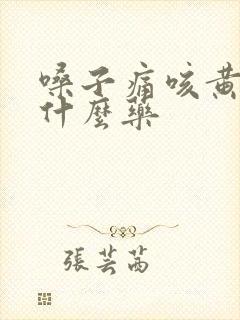 嗓子痛咳黄
什麽藥
張芸茜